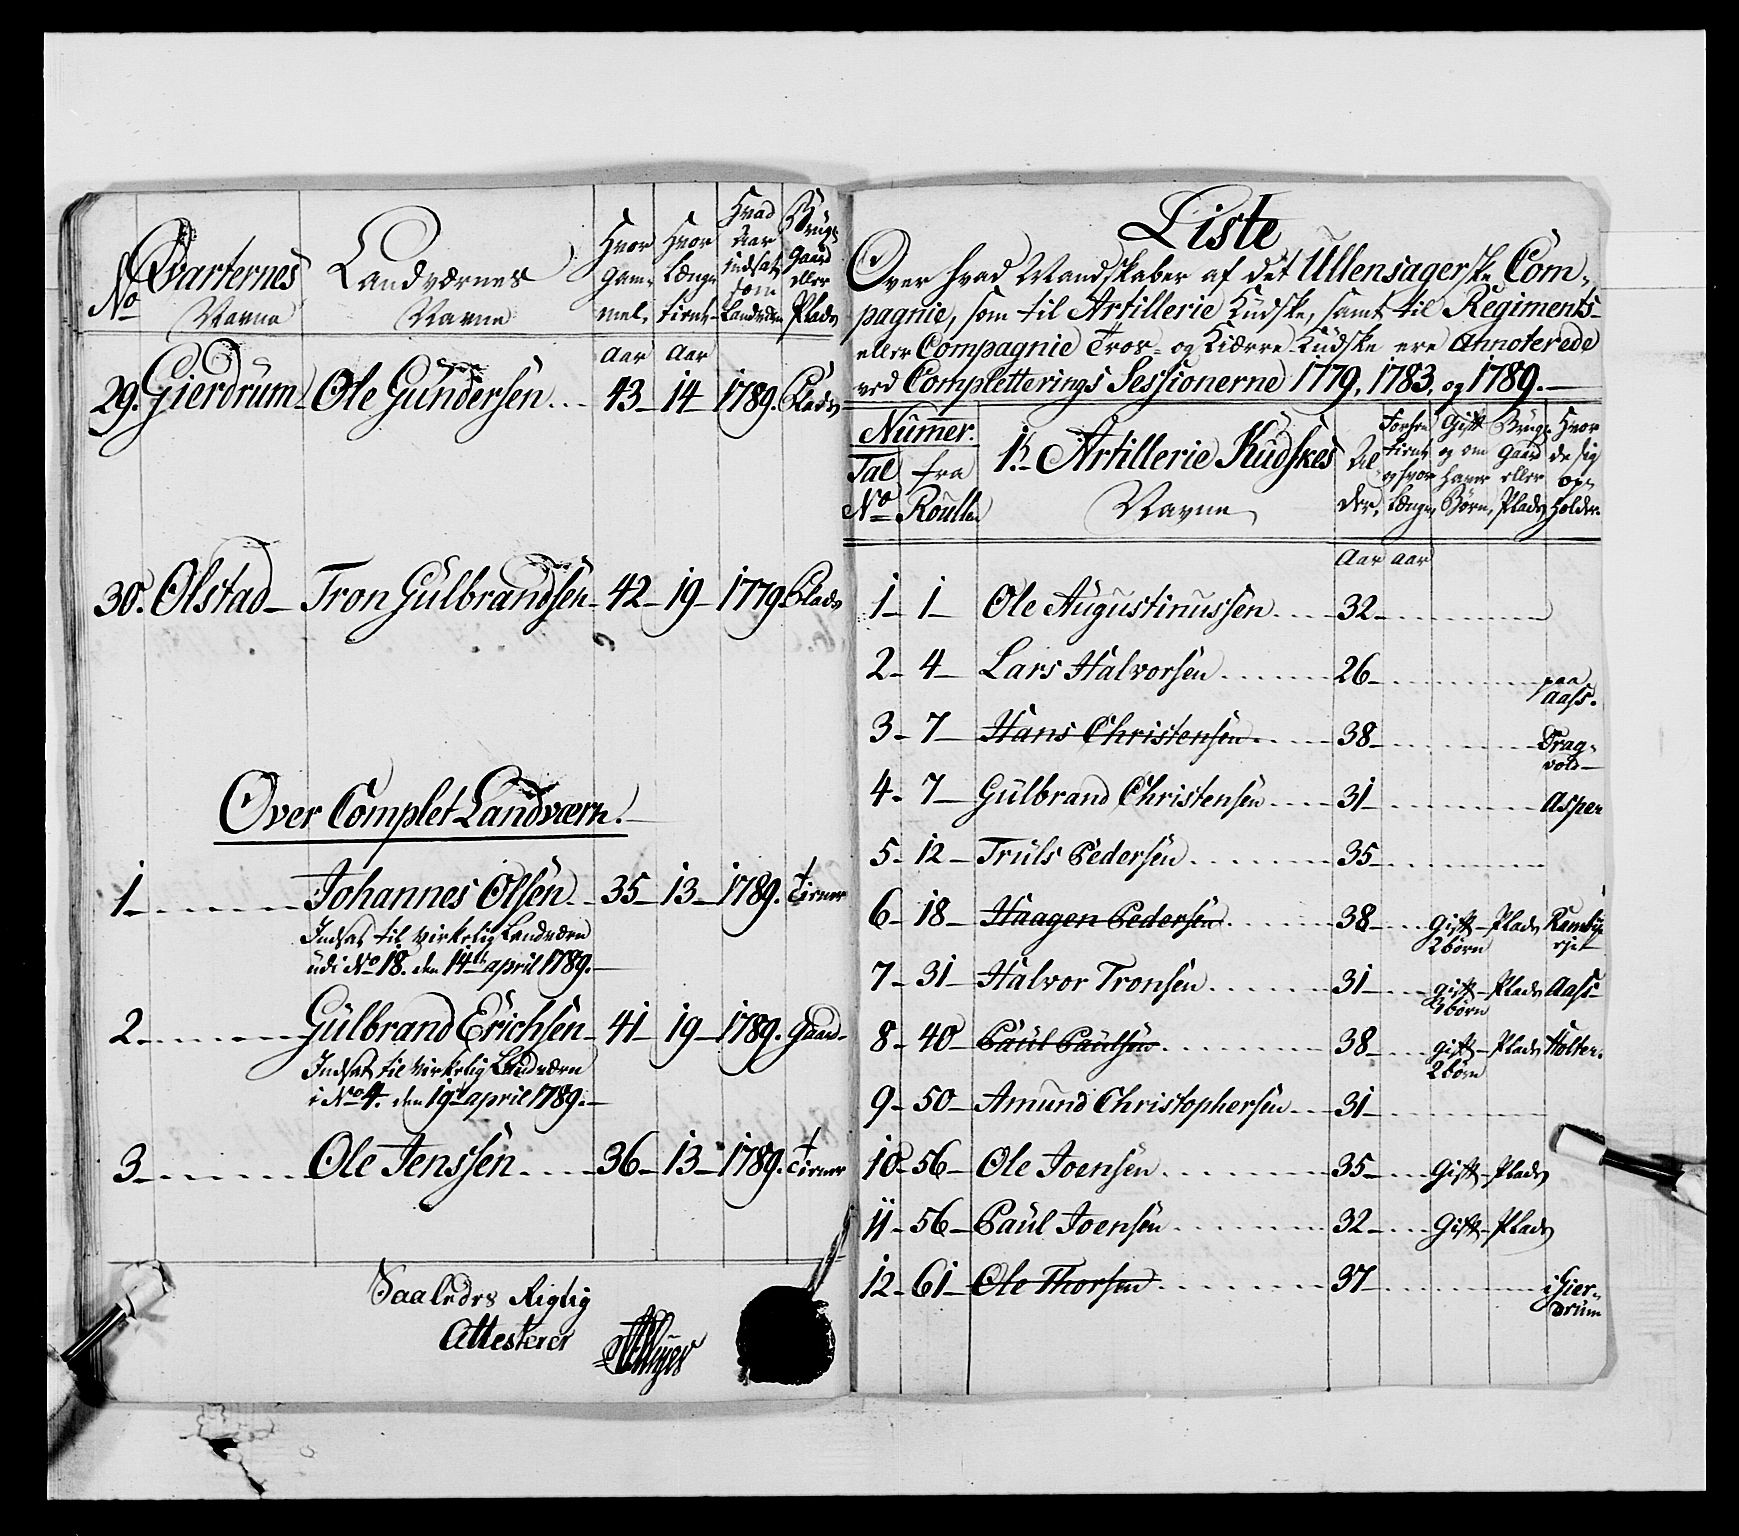 No Qvarternes Navne | Landværnes Navne | Hvor gam- mel. | Hvor længe tient | Hvad Aar indsat som Landværn | Brug- Gaard eller Plads
Aar Aar
29. Gierdrum Ole Gundersen 43 14 1789. Plads
30. Ølstad Tron Gulbrandsen 42 19 1779. Plads
Over Complet Landværn.
1 Johannes Olsen 35 13 1789. tiener
Indsat til virkelig Landværn
udi No 18. den 14de april 1789.
2 Gulbrand Erichsen 41 19 1789. Gaard
Indsat til virkelig Landværn
i No 4. den 19de april 1789.
3 Ole Jenssen 36 13 1789. tiener
Saaledes Rigtig
Attesterer
Liste
Over hvad Mandskaber af det Ullensagerske Com-
pagnie, som til Artillerie Kudske, samt til Regiments-
eller Compagnie Tros- og Kiærre-Kudske ere Annoterede
ved Completterings Sessionerne 1779, 1783, og 1789.
Numer. Tal No | fra Roullen | 1. Artillerie Kudskes Navne | Al- der, | Forhen tient og hvor længe, | Gift og om haver Børn, | Brug- Gaard eller Plads | Hvor de sig op- holder.
Aar aar
1 1 Ole Augustinussen 32
2 4 Lars Halvorsen 26 paa Aass.
3 7 Hans Christensen 38 Dragvold
4 7 Gulbrand Christensen 31 Asper
5 12 Truls Pedersen 35
6 18 Haagen Pedersen 38 Gift 2 børn Plads
7 31 Halvor Tronsen 31 gift børn Plads Aass
8 40 Paul Paulsen 38 gift 2 børn Plads Holter.
9 50 Amund Christophersen 31
10 56 Ole Joensen 35 Gift Plads
11 56 Paul Joensen 32 Gift Plads
12 61 Ole Thorsen 37 i Gier- drum